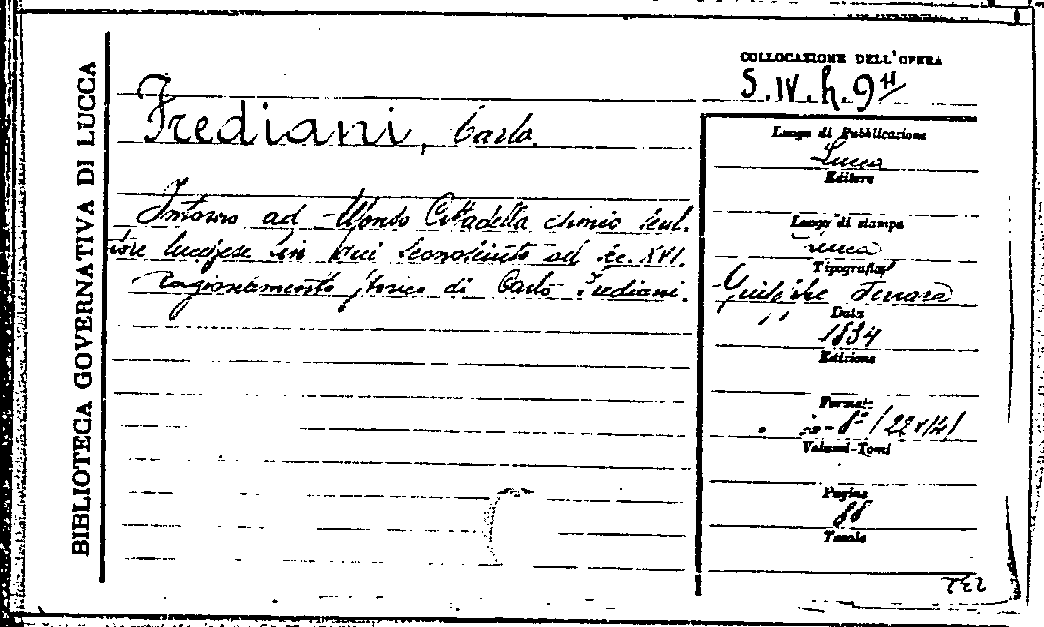 BIBLIOTECA GOVERNATIVA DI LUCCA
COLLOCAZIONE DELL'OPERA
S.IV.h.9
Frediani, Carlo.
Intorno ad Alfonso Cittadella esimio scul-
tore lucchese fin qui sconosciuto del sec. XVI.
ragionamento storico di Carlo Frediani.
Luogo di Pubblicazione
Lucca
Editore
Luogo di stampa
Lucca
Tipografia
Data
1834
Edizione
Formato
in-8° (22x14)
Volumi-Tomi
Pagine
88
Tavole